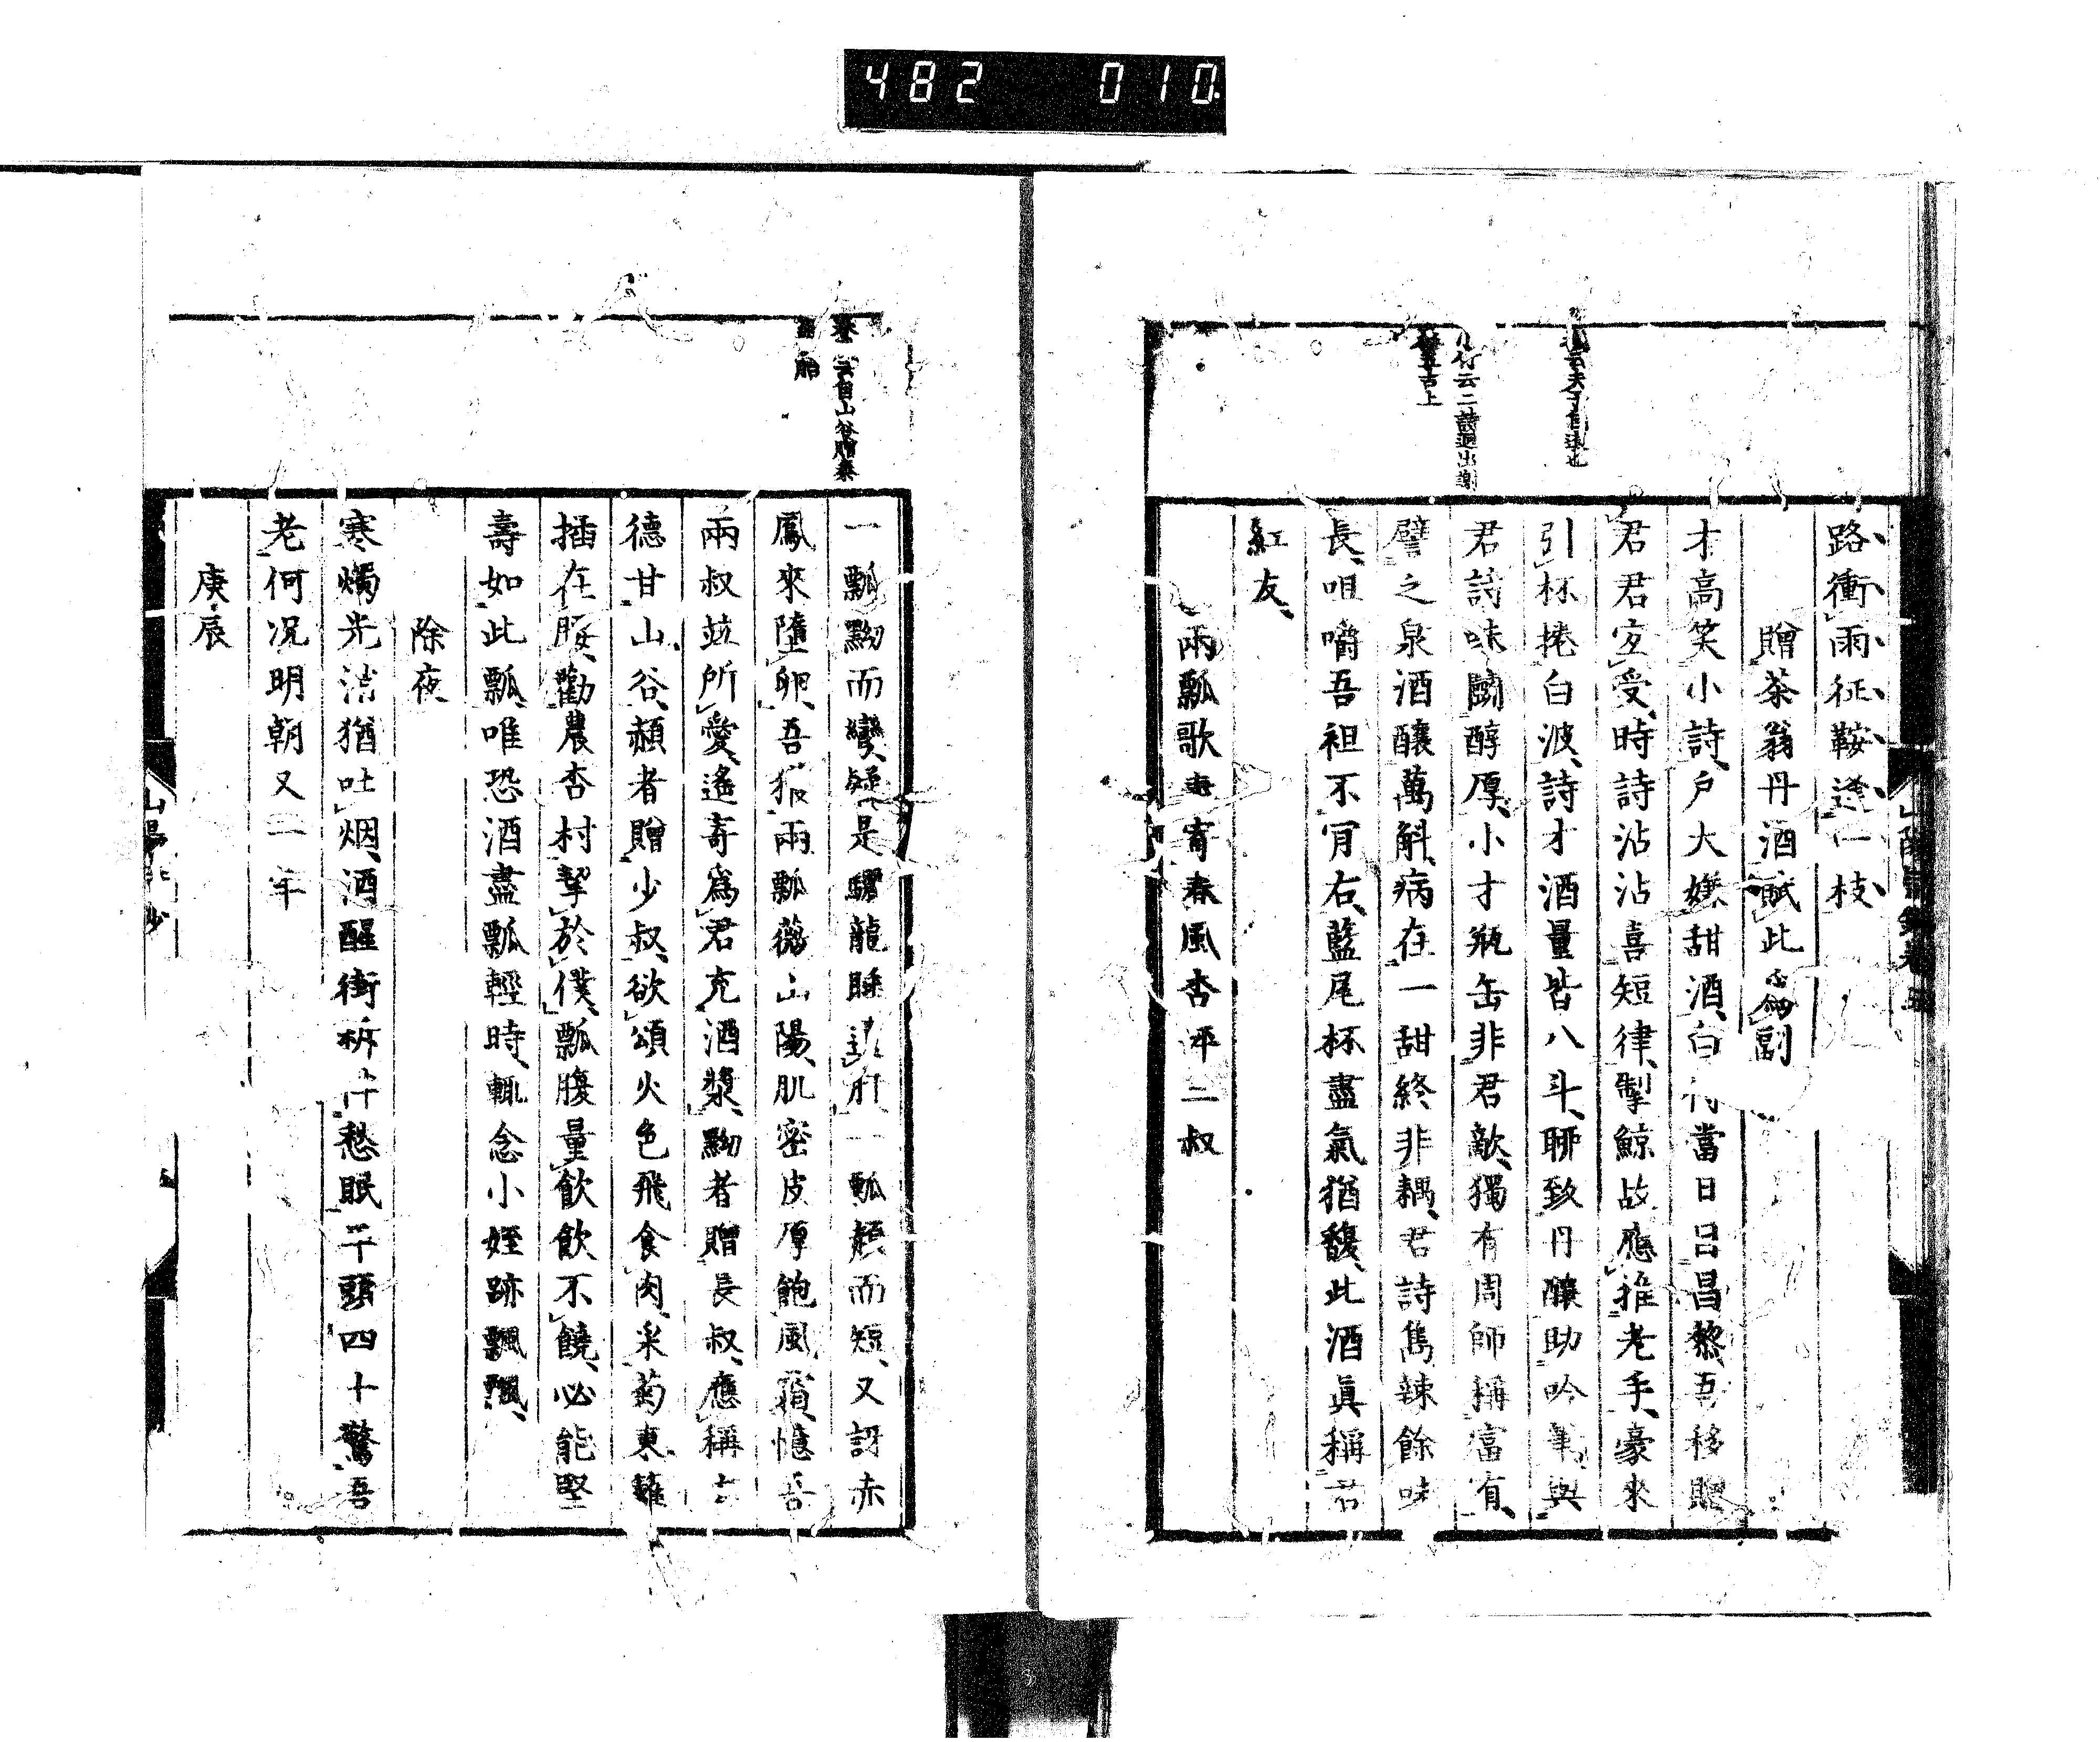 482 010
路衝雨征鞍逢一枝
贈茶翁丹酒賦此為副
才高笑小詩戶大嫌甜酒白當日呂昌黎吾移贈
君君宜受時詩沾沾喜短律掣鯨故應推老手豪來
引杯捲白波詩才酒量皆八斗聊致丹釀助吟筆與
君詩味鬭醇厚小才瓶缶非君敵獨有周師稱富有
譬之泉酒釀萬斛病在一甜終非耦君詩雋辣餘味
長咀嚼吾袒不肎右藍尾杯盡氣猶馥此酒真稱君
紅友
兩瓢歌寄春風杏坪二叔
小竹云二詩迥出
五古上
一瓢黝而彎疑是驪龍睡肝一瓢赬而短又訝赤
鳳來墮卵吾報兩瓢薇山陽肌密皮厚飽風霜憶吾
兩叔竝所愛遙寄為君充酒漿黝者贈長叔應稱古
德甘山谷赬者贈少叔欲頌火色飛食肉采菊東籬
插在腰勸農杏村挈於僕瓢腹量飲飲不饒必能堅
壽如此瓢唯恐酒盡瓢輕時輒念小姪跡飄飄
除夜
寒燭光清猶吐烟酒醒街柝伴愁眠平頭四十驚吾
老何况明朝又一年
庚辰
云自山谷贈秦